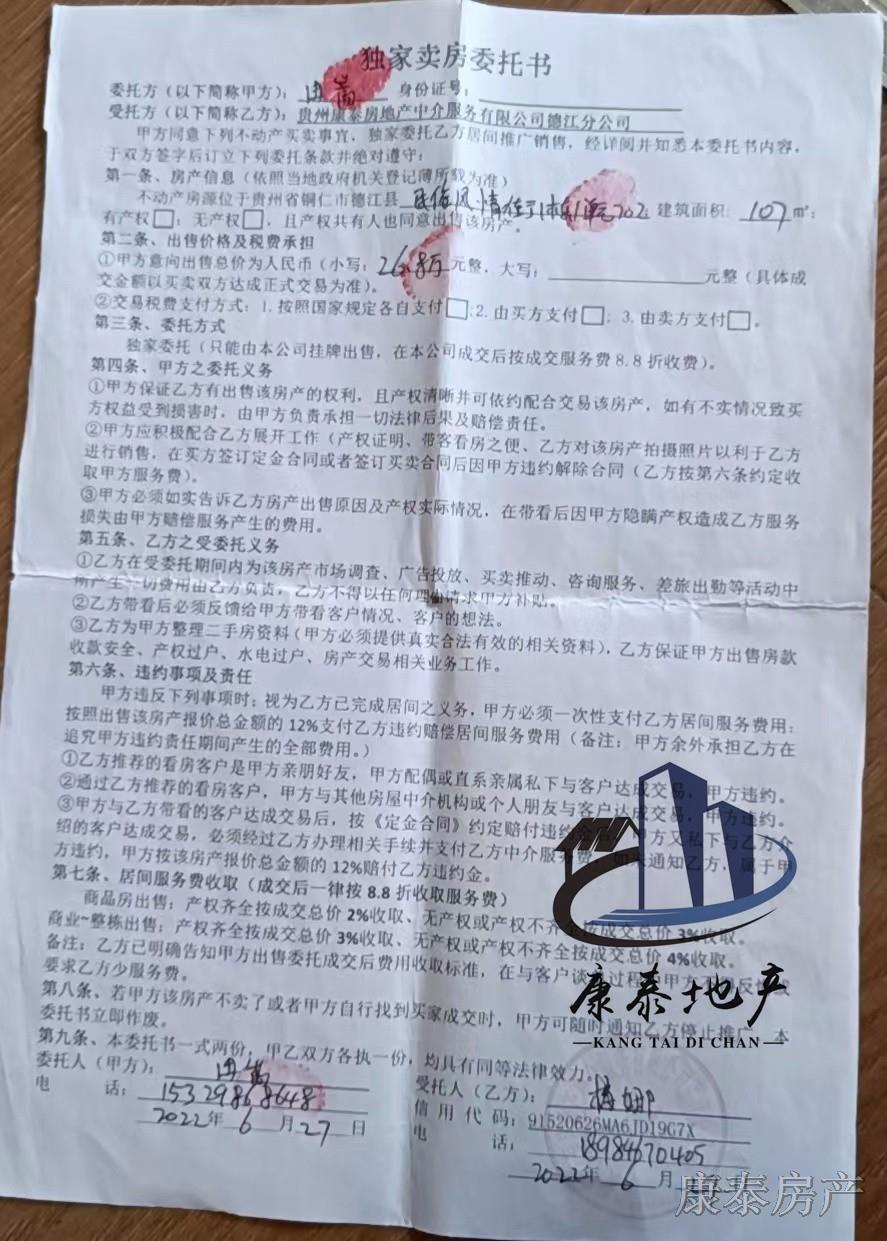 独家卖房委托书
委托方（以下简称甲方）： 身份证号：
受托方（以下简称乙方）：贵州康泰房地产中介服务有限公司德江分公司
甲方同意下列不动产买卖事宜，独家委托乙方居间推广销售，经详阅并知悉本委托书内容，
于双方签字后订立下列委托条款并绝对遵守：
第一条、房产信息（依照当地政府机关登记薄所载为准）
不动产房源位于贵州省铜仁市德江县 702 建筑面积：107㎡；
有产权□；无产权□，且产权共有人也同意出售该房产。
第二条、出售价格及税费承担
①甲方意向出售总价为人民币（小写：26.8万元整，大写： 元整（具体成
交金额以买卖双方达成正式交易为准）。
②交易税费支付方式：1.按照国家规定各自支付□；2.由买方支付□；3.由卖方支付□。
第三条、委托方式
独家委托（只能由本公司挂牌出售，在本公司成交后按成交服务费8.8折收费）。
第四条、甲方之委托义务
①甲方保证乙方有出售该房产的权利，且产权清晰并可依约配合交易该房产，如有不实情况致买
方权益受到损害时，由甲方负责承担一切法律后果及赔偿责任。
②甲方应积极配合乙方展开工作（产权证明、带客看房之便、乙方对该房产拍摄照片以利于乙方
进行销售，在买方签订定金合同或者签订买卖合同后因甲方违约解除合同（乙方按第六条约定收
取甲方服务费）。
③甲方必须如实告诉乙方房产出售原因及产权实际情况，在带看后因甲方隐瞒产权造成乙方服务
损失由甲方赔偿服务产生的费用。
第五条、乙方之受委托义务
①乙方在受委托期间内为该房产市场调查、广告投放、买卖推动、咨询服务、差旅出勤等活动中
所产生一切费用由乙方负责，乙方不得以任何理由请求甲方补贴。
②乙方带看后必须反馈给甲方带看客户情况、客户的想法。
③乙方为甲方整理二手房资料（甲方必须提供真实合法有效的相关资料），乙方保证甲方出售房款
收款安全、产权过户、水电过户、房产交易相关业务工作。
第六条、违约事项及责任
甲方违反下列事项时；视为乙方已完成居间之义务，甲方必须一次性支付乙方居间服务费用：
按照出售该房产报价总金额的12%支付乙方违约赔偿居间服务费用（备注：甲方余外承担乙方在
追究甲方违约责任期间产生的全部费用。）
①乙方推荐的看房客户是甲方亲朋好友，甲方配偶或直系亲属私下与客户达成交易，甲方违约。
②通过乙方推荐的看房客户，甲方与其他房屋中介机构或个人朋友与客户达成交易，甲方违约。
③甲方与乙方带看的客户达成交易后，按《定金合同》约定赔付违约 甲方又私下与乙方介
绍的客户达成交易，必须经过乙方办理相关手续并支付乙方中介服务费，如未通知乙方，属于甲
方违约，甲方按该房产报价总金额的12%赔付乙方违约金。
第七条、居间服务费收取（成交后一律按8.8折收取服务费）
商品房出售：产权齐全按成交总价2%收取、无产权或产权不齐全按成交总价3%收取。
商业~整栋出售：产权齐全按成交总价3%收取、无产权或产权不齐全按成交总价4%收取。
备注：乙方已明确告知甲方出售委托成交后费用收取标准，在与客户谈 过程 甲方不
要求乙方少服务费。
第八条、若甲方该房产不卖了或者甲方自行找到买家成交时，甲方可随时通知乙方停止推广，本
委托书立即作废。
第九条、本委托书一式两份，甲乙双方各执一份，均具有同等法律效力。
委托人（甲方）：
电 话：15329868648
2022年6月27日
受托人（乙方）：
信用代码：91520626MA6JD19G7X
电 话：18984670405
2022年6月
康泰地产
KANG TAI DI CHAN
康泰房产